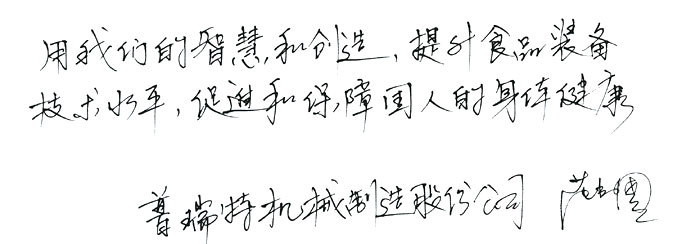 用我们的智慧和创造，提升食品装备
技术水平，促进和保障国人的身体健康
普瑞特机械制造股份公司